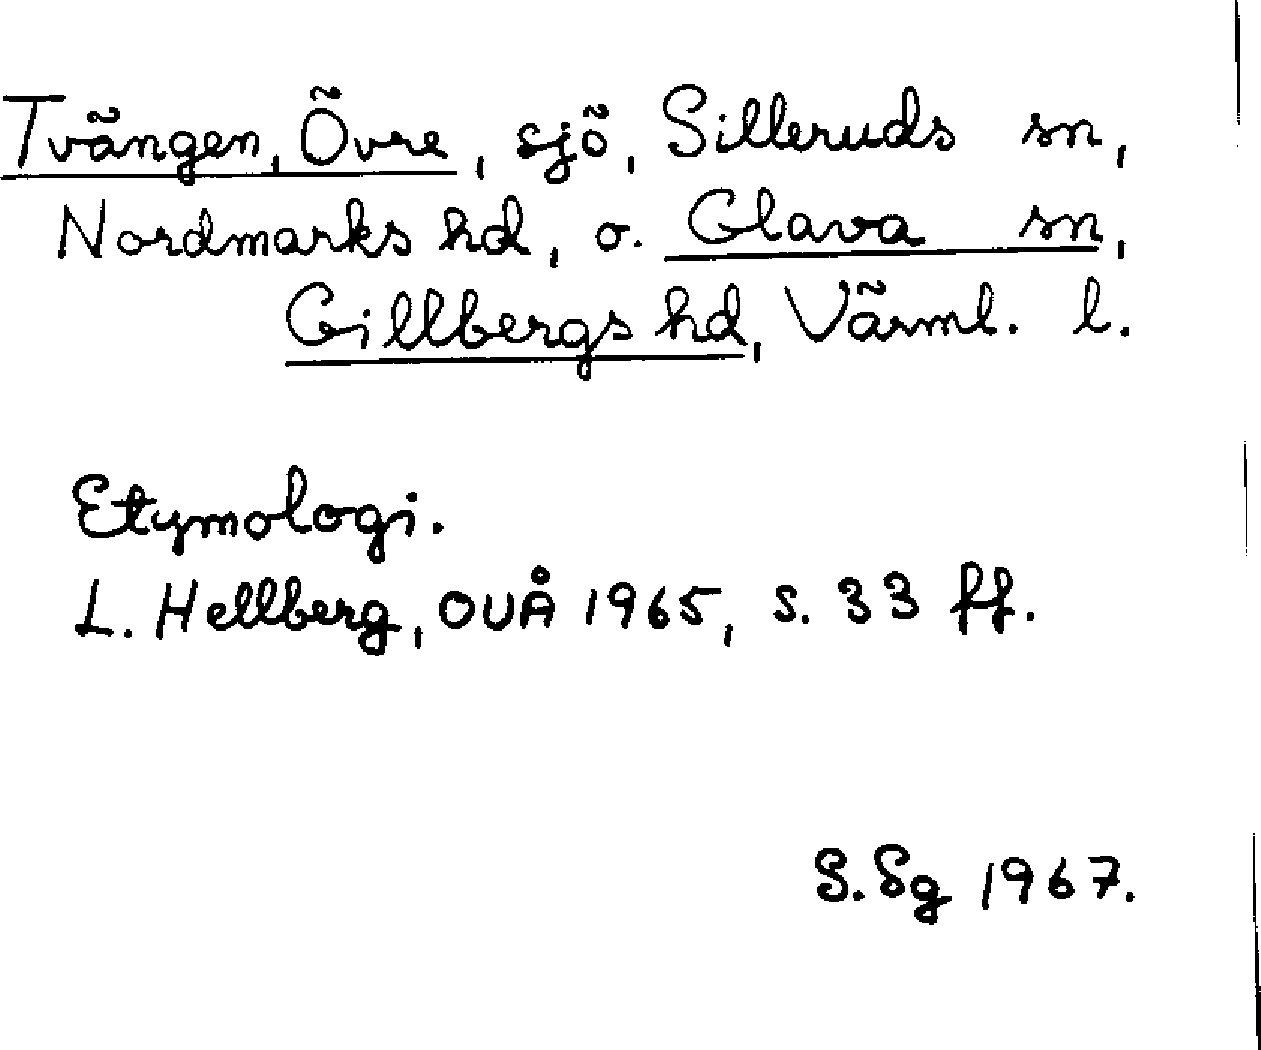 Tvängen, Övre, sjö, Silleruds sn,
Nordmarks hd, o. Glava sn,
Gillbergs hd, Värml. l.
Etymologi.
L. Hellberg, OUÅ 1965, s. 33 ff.
S. Sg 1967.